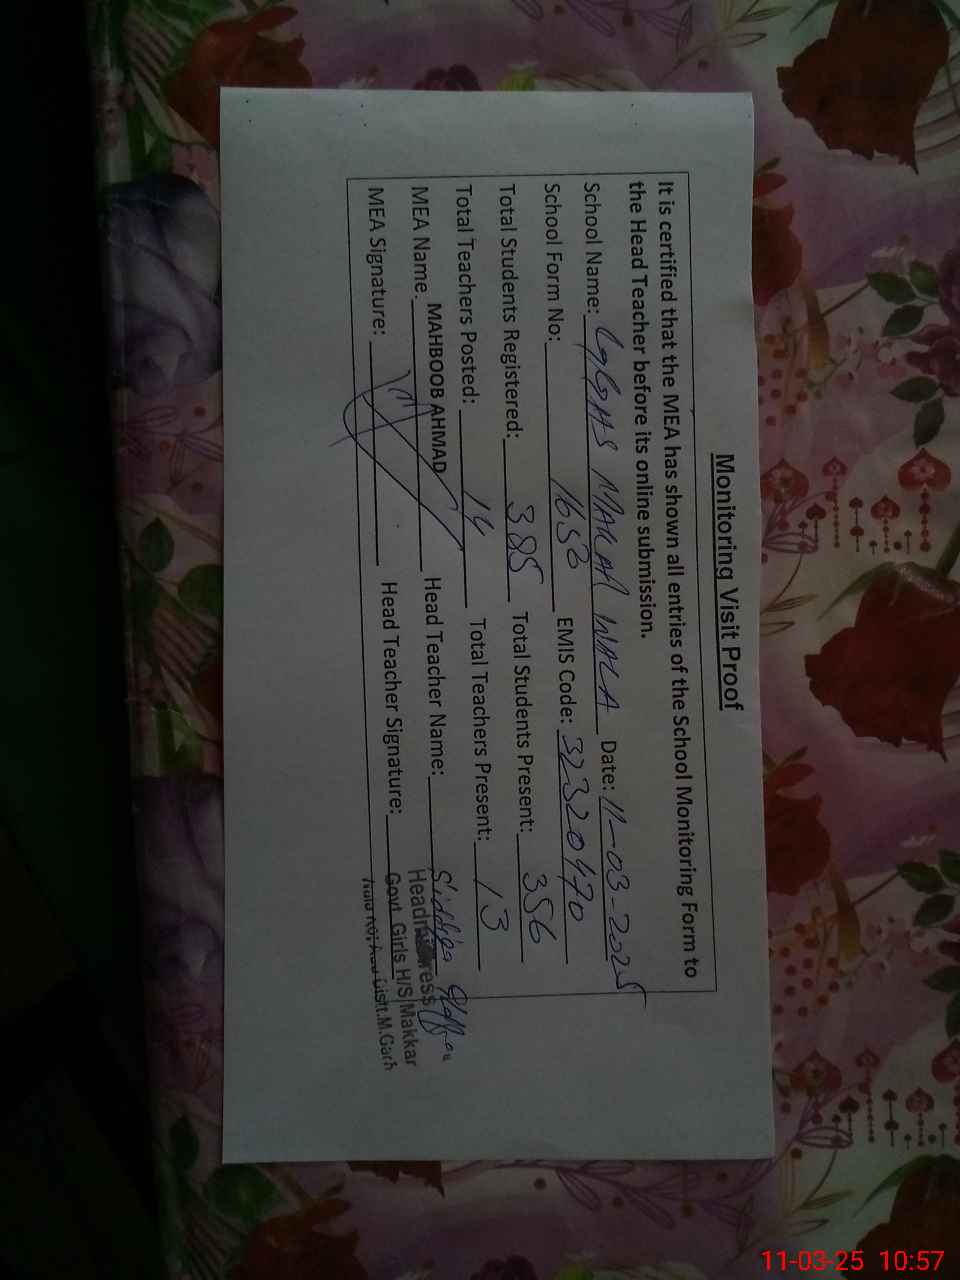 Monitoring Visit Proof
It is certified that the MEA has shown all entries of the School Monitoring Form to
the Head Teacher before its online submission.
School Name: GGHS MAKAR WALA Date: 11-03-2025
School Form No: 1658 EMIS Code: 32320470
Total Students Registered: 385 Total Students Present: 356
Total Teachers Posted: 14 Total Teachers Present: 13
MEA Name: MAHBOOB AHMAD Head Teacher Name: Siddiqa
MEA Signature: Head Teacher Signature:
Headmistress
Govt Girls H/S Makkar
Distt.M.Garh
11-03-25 10:57